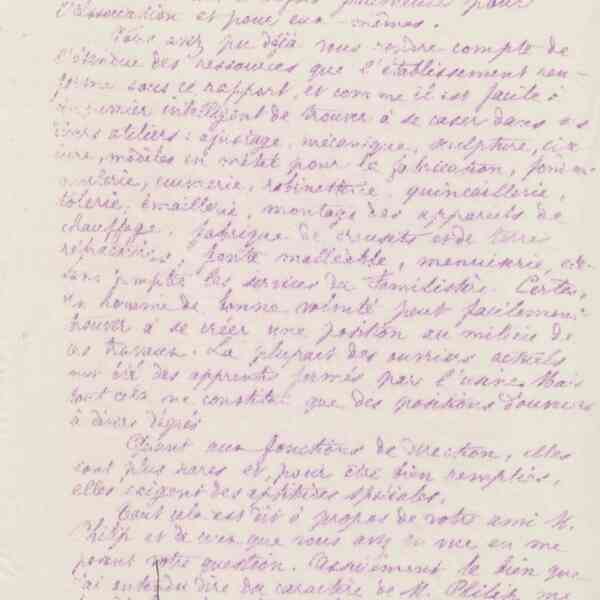 l'association et pour eux-mêmes.
Vous avez pu déjà vous rendre compte de
l'étendue des ressources que l'établissement ren-
ferme sous ce rapport, et comme il est facile à
intelligent de trouver à se caser dans
ateliers : ajustage, mécanique, sculpture,
modèles en métal pour la fabrication,
cuivrerie, robinetterie, quincaillerie,
tôlerie, émaillerie, montage des appareils de
chauffage, fabrique de creusets et de terres
réfractaires, fonte malléable, menuiserie,
sans compter les services du familistère. Certes,
un homme de bonne volonté peut facilement
trouver à se créer une position au milieu de
ces travaux. La plupart des ouvriers actuels
ont été des apprentis formés par l'usine. Mais
tout cela ne constitue que des positions d'ouvriers
à divers degrés
Quant aux fonctions de direction, elles
sont plus rares et, pour être bien remplies,
elles exigent des aptitudes spéciales.
Tout cela est dit à propos de votre ami M.
Philip et de ce que vous avez eu vue en me
posant votre question. Assurément le bien que
j'ai entendu dire du caractère de M. Philip me